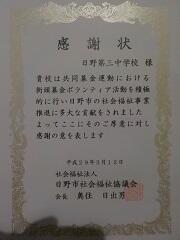 感謝状
日野第三中学校 様
貴校は共同募金運動における
街頭募金ボランティア活動を積極
的に行い日野市の社会福祉事業
推進に多大な貢献をされました
よってここにそのご厚意に対し
感謝の意を表します
平成29年3月12日
社会福祉法人
日野市社会福祉協議会
会長 奥住 日出男